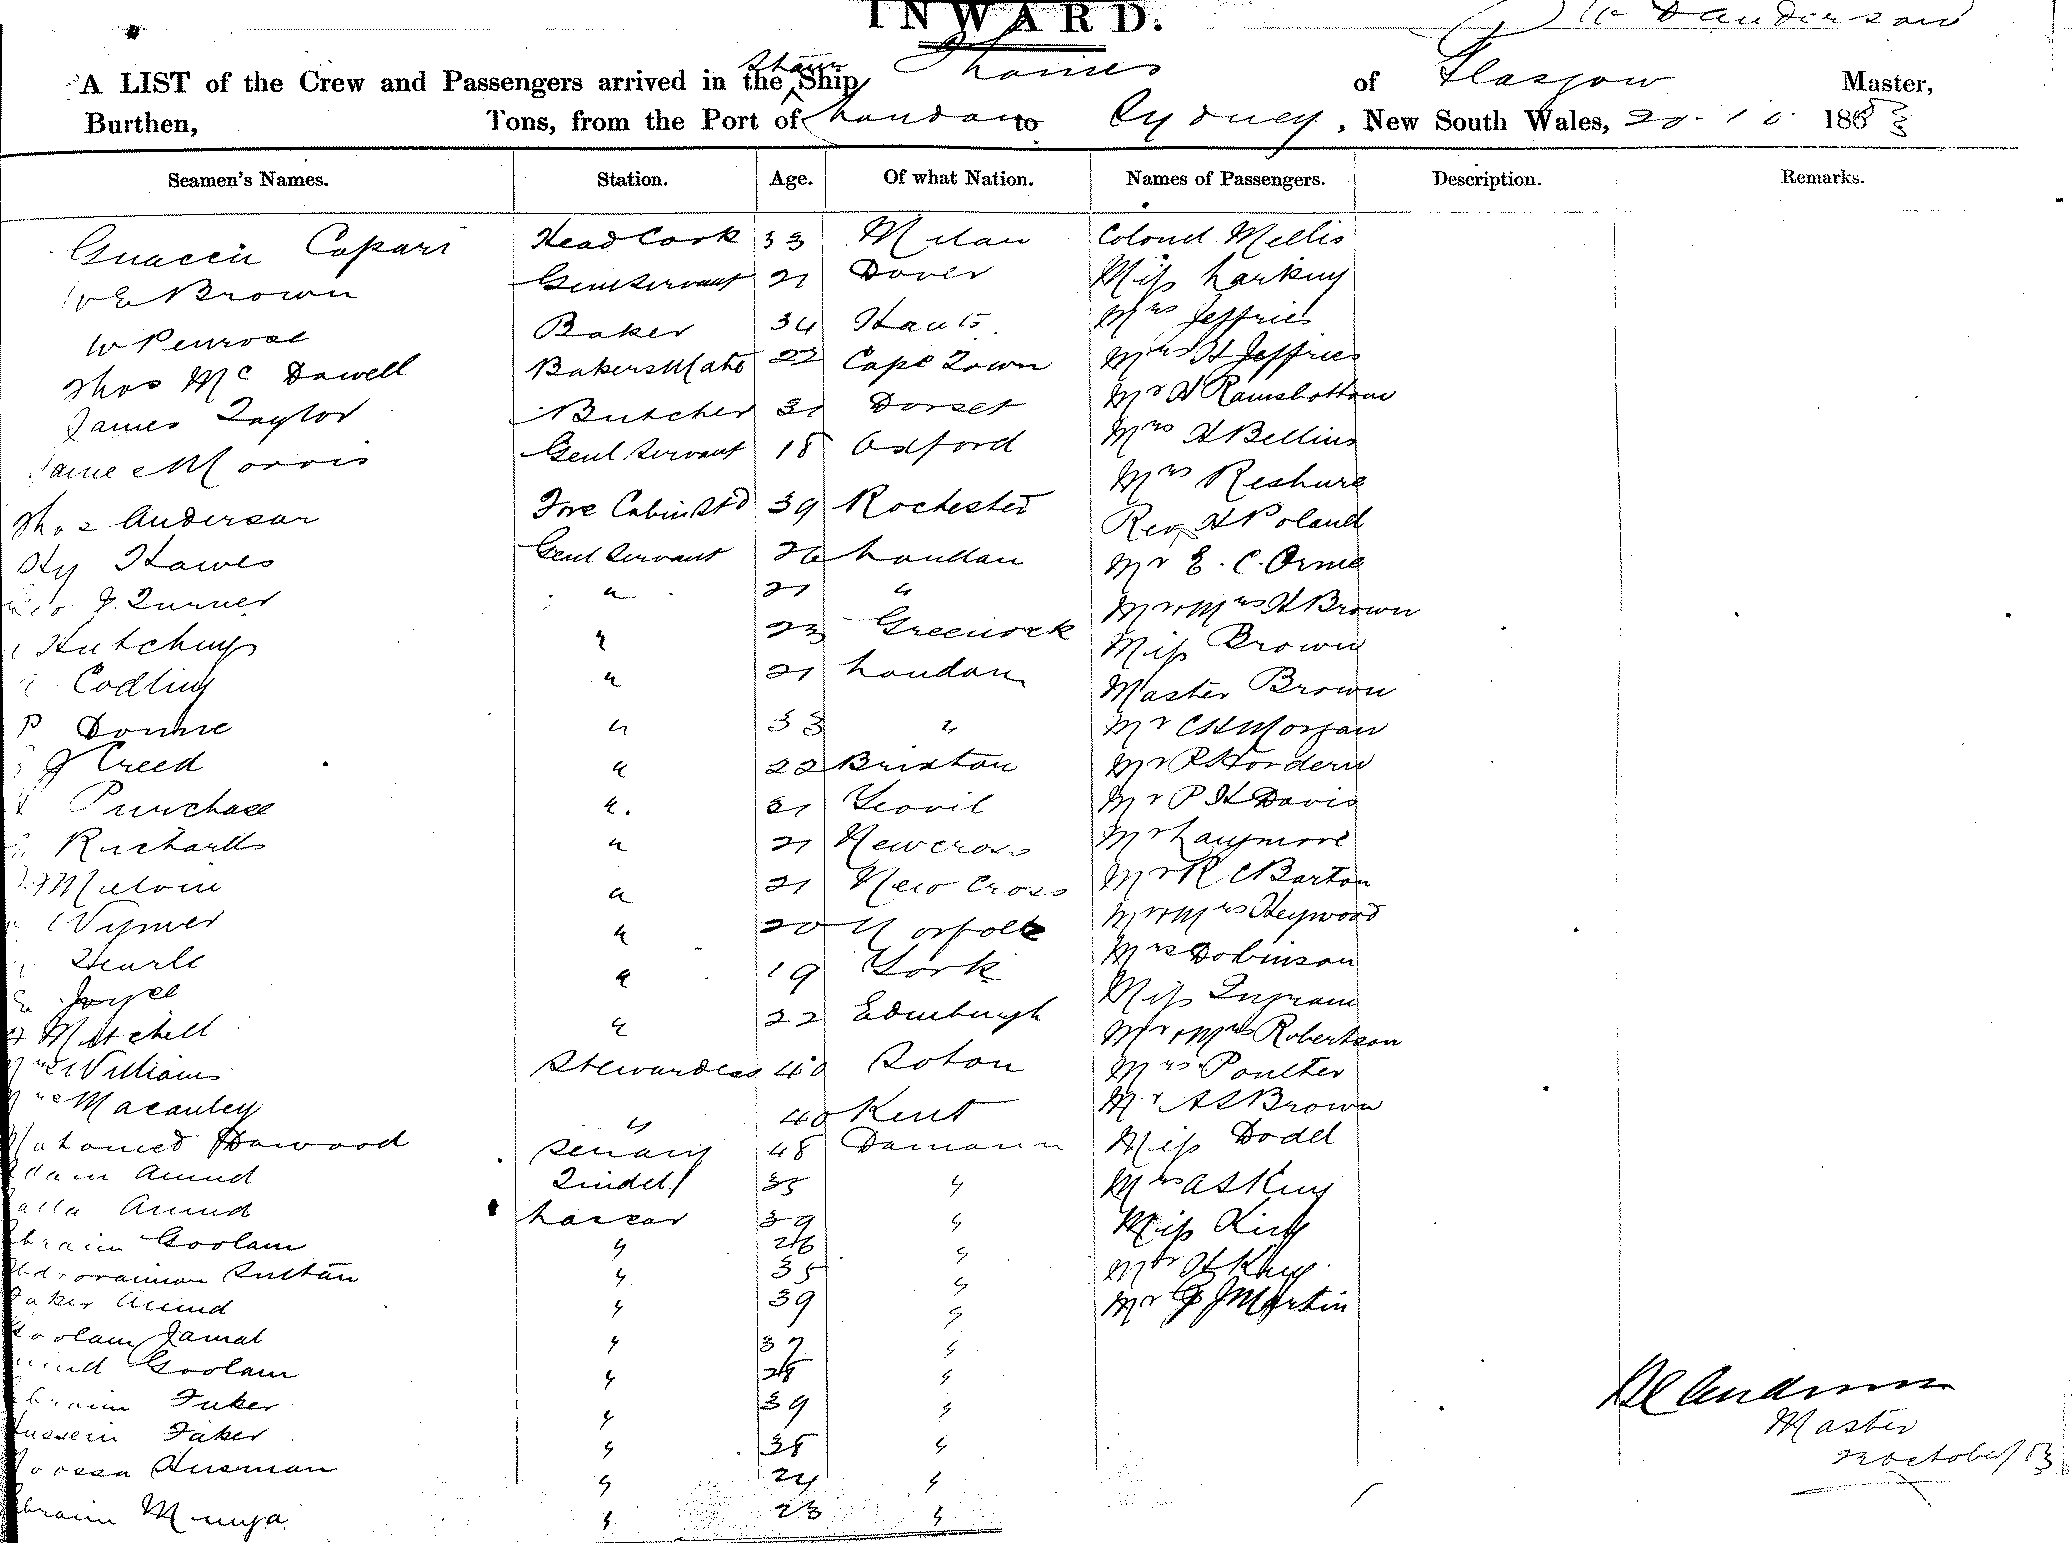 INWARD.
Danderson
A LIST of the Crew and Passengers arrived in the Steam Ship Thames of Glasgow Master,
Burthen, Tons, from the Port of London to Sydney, New South Wales, 20.10. 1883
Seamen's Names. Station. Age. Of what Nation. Names of Passengers. Description. Remarks.
Copari Head Cook 33 Milan Colonel Mellis
Brown Genl Servant 21 Dover Miss Larking
W Penrose Baker 34 Hants Mrs Jeffries
Thos Mc Dowell Bakers Mate 22 Cape Town Mrs H Jeffries
James Taylor Butcher 31 Dorset Mr H Ramsbottom
Jame Morris Genl Servant 18 Oxford Mrs H Bellins
Thos Anderson Fore Cabin Std 39 Rochester Mrs Reshure
Hy Hawes Genl Servant 26 London Rev H Poland
J. Turner " 21 " Mr E. C. Orme
Hutchings " 23 Greenock Mr & Mrs H Brown
Codling " 21 London Miss Brown
P Downie " 33 " Master Brown
J Creed " 22 Brixton Mr C H Morgan
Purchase " 21 Yeovil Mr R Hordern
Richards " 21 Newcross Mr P H Davis
Melvin " 21 New Cross Mr Langmore
Wymer " 20 Norfolk Mr R C Barton
Hearle " 19 York Mr & Mrs Heywood
Joyce Mrs Dobinson
Mitchell " 22 Edinburgh Miss Ingram
Mrs Williams Stewardess 40 Soton Mr & Mrs Robertson
Mrs Macauley " 40 Kent Mrs Poulter
Mahomed Dawood Serang 48 Damaun Mr A S Brown
Adam Amud Tindel 35 " Miss Dodd
Amud Lascar 39 " Mrs A S King
Ebraim Goolam " 26 " Miss King
Abdroraiman Sultan " 35 " Mr H King
Faker Amud " 39 " Mr G J Martin
Goolam Jamal " 37 "
Goolam " 28 "
Ebraim Faker " 39 "
Hussein Faker " 38 "
Moossa Ausman " 24 "
Ebraim Munga " 23 "
Master
October 83